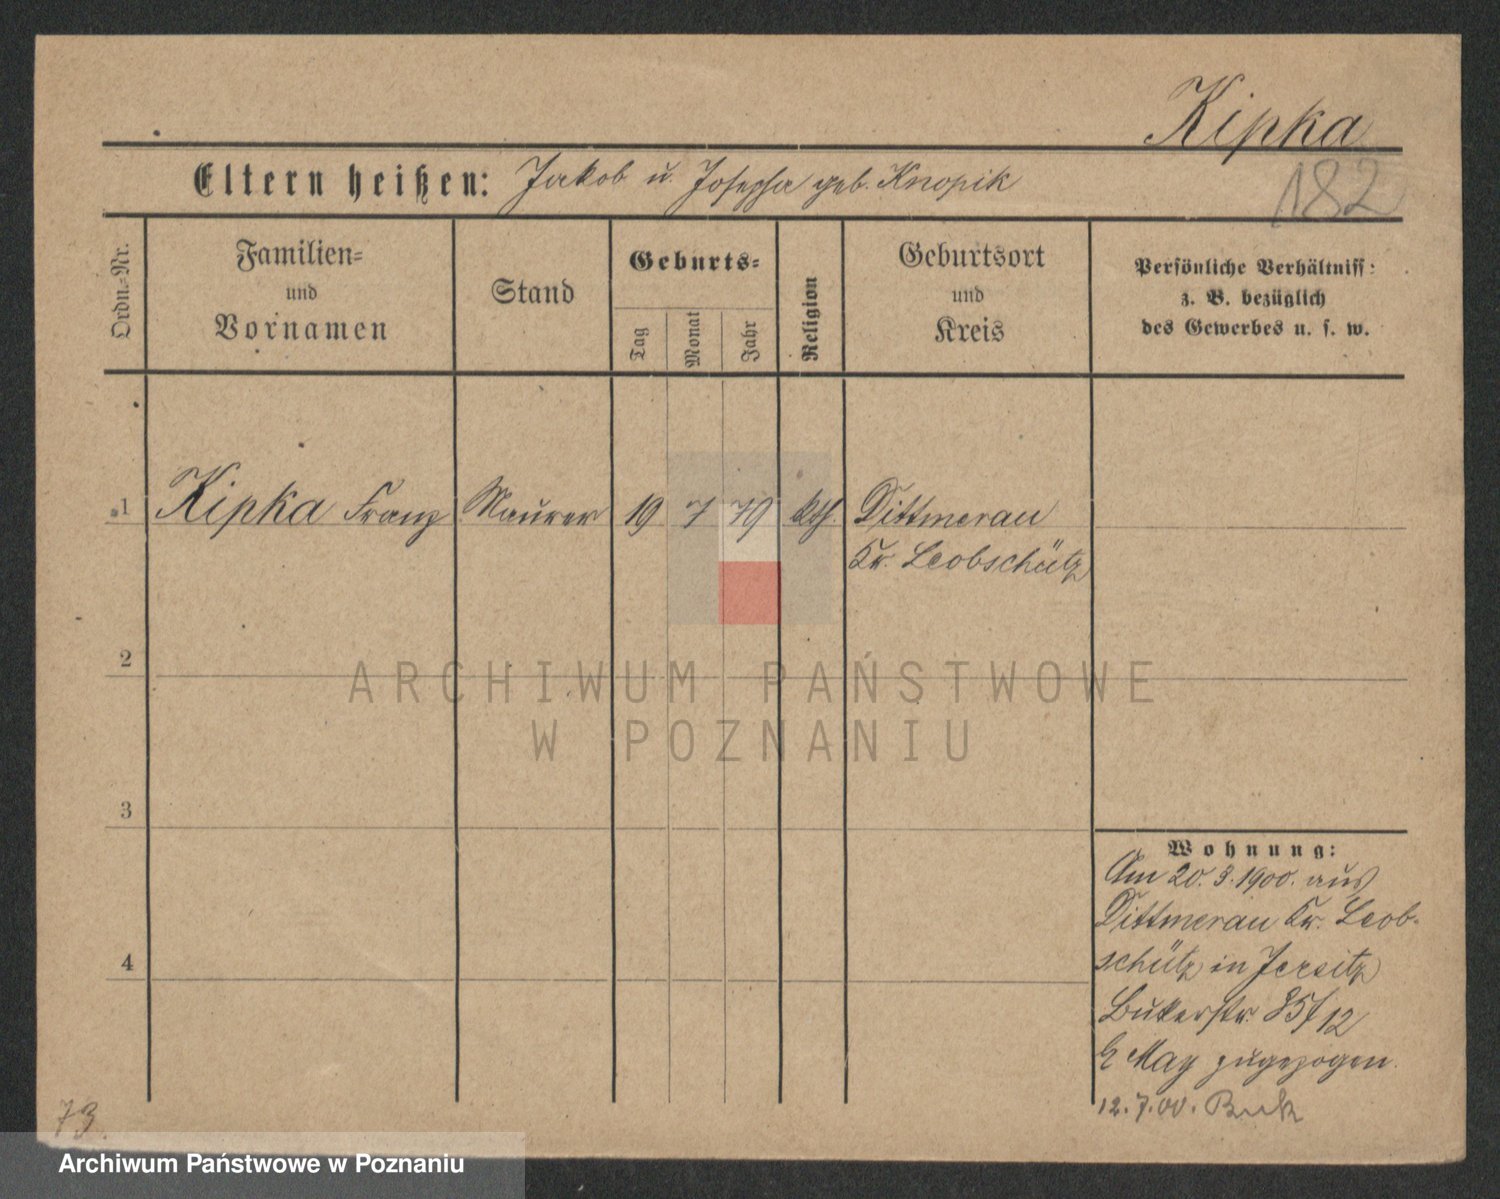 Kipka
182
Eltern heißen: Jakob u. Josepha geb. Knopik
Ordn.-Nr.
Familien-
und
Vornamen
Stand
Geburts-
Tag
Monat
Jahr
Religion
Geburtsort
und
Kreis
Persönliche Verhältniss:
z. B. bezüglich
des Gewerbes u. s. w.
1 Kipka Franz Maurer 19 7 79 kth. Dittmerau
Kr. Leobschütz
2
ARCHIWUM PAŃSTWOWE
W POZNANIU
3
4
Wohnung:
Am 20.3.1900. aus
Dittmerau Kr. Leob-
schütz in Jersitz
Bukerstr. 35/12
b May zugezogen.
12.7.00. Buk
73.
Archiwum Państwowe w Poznaniu